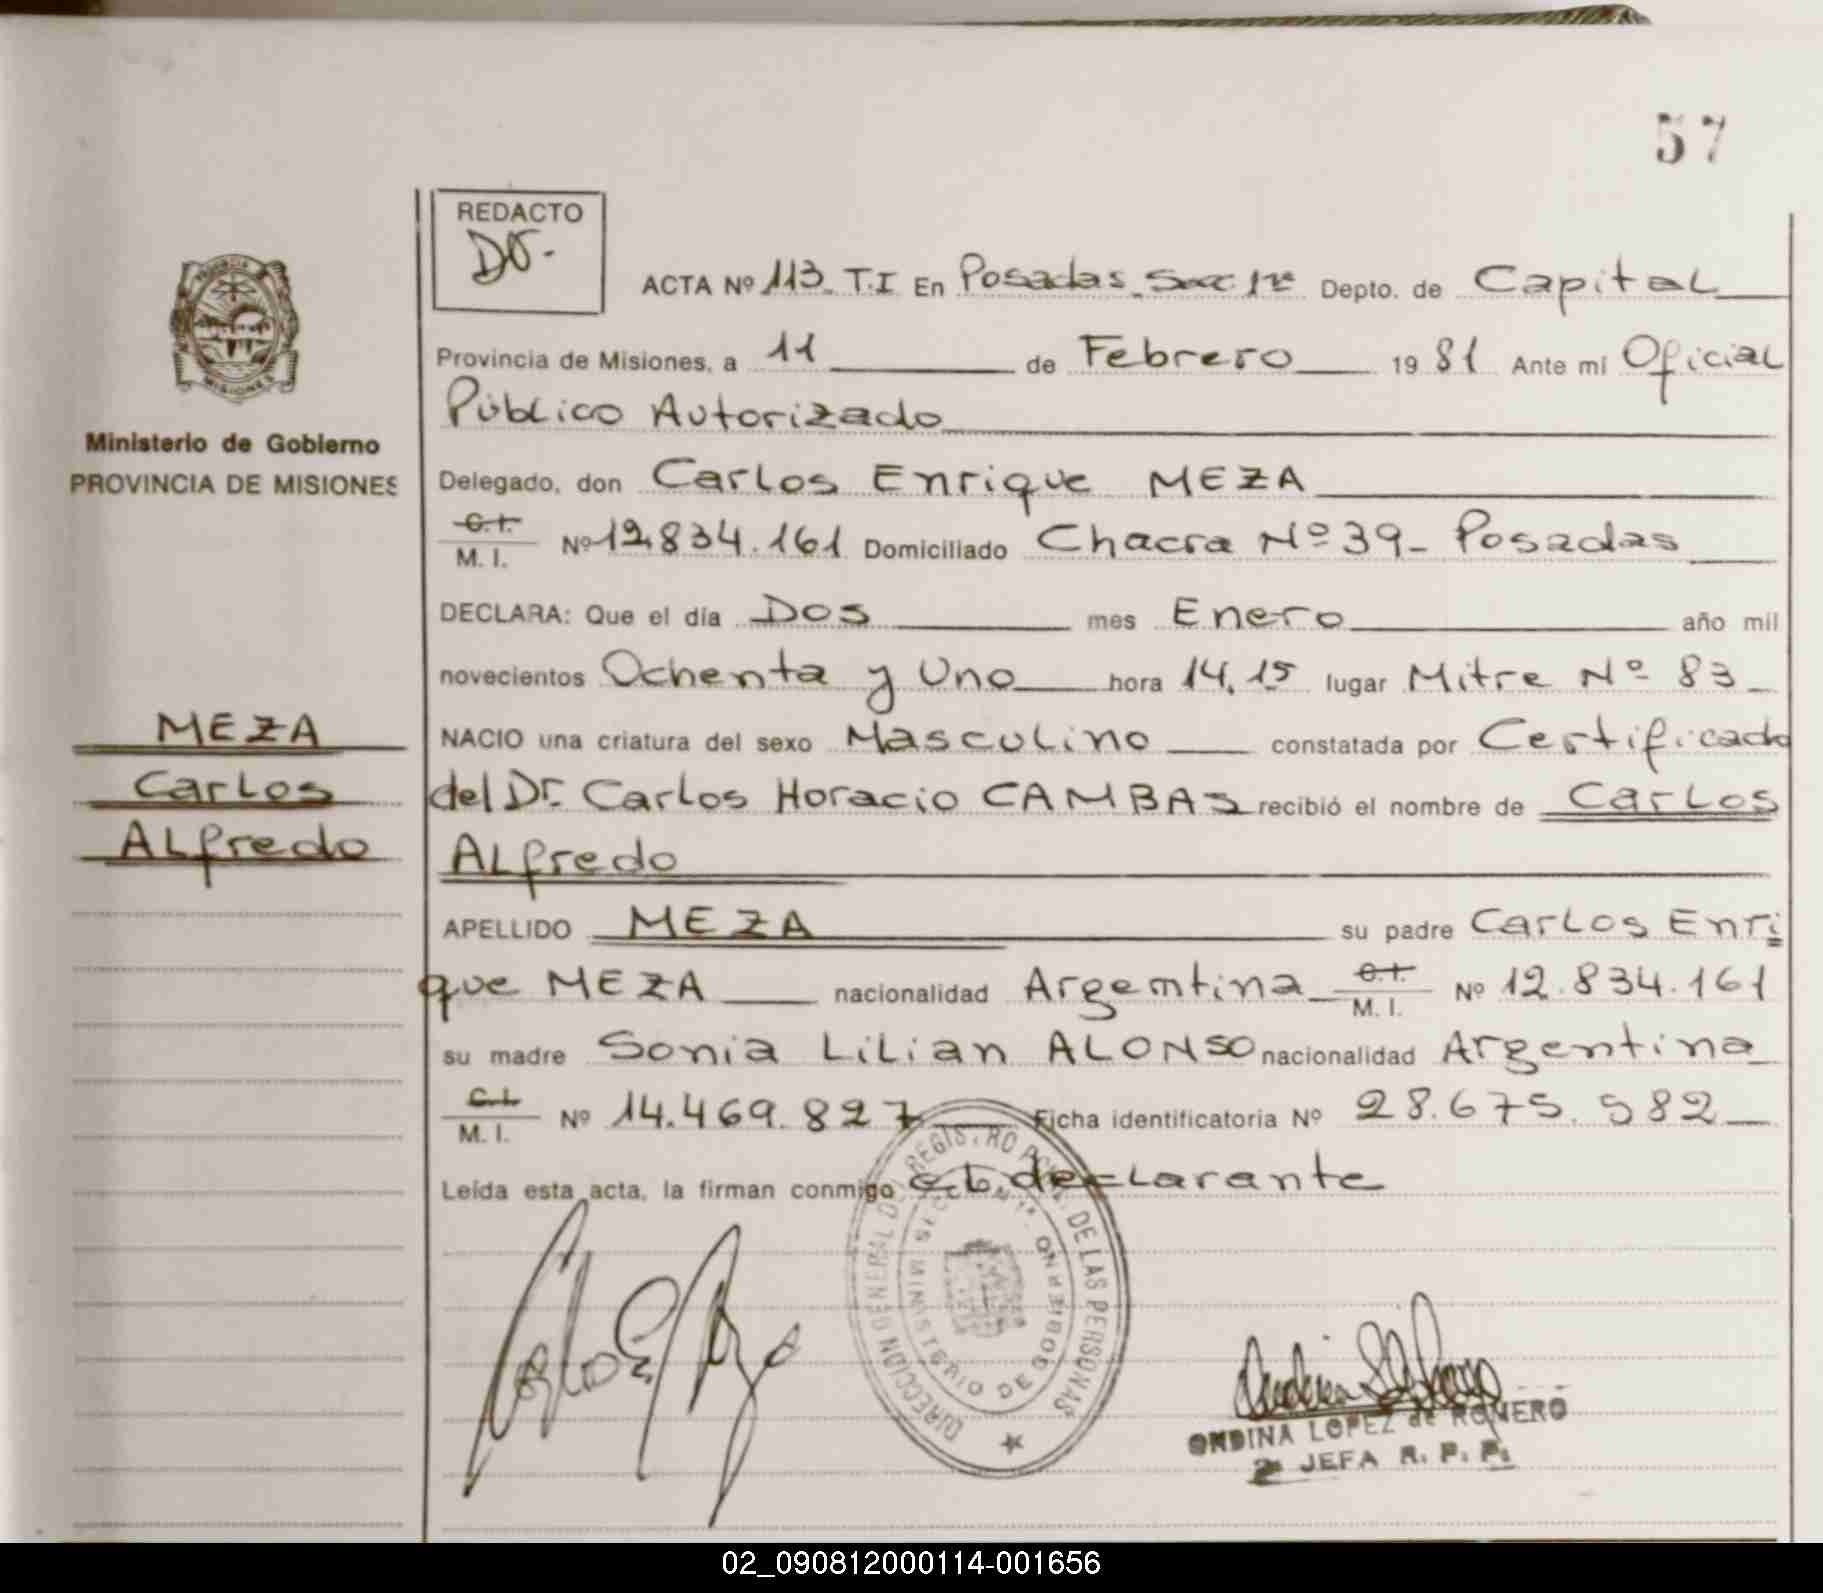 57
REDACTO
DO.
ACTA Nº 113. T.I En Posadas. Secc 1ra Depto. de Capital
Provincia de Misiones, a 11 de Febrero 1981 Ante mi Oficial
Público Autorizado
Delegado, don Carlos Enrique MEZA
C.I.
M. I. Nº 12.834.161 Domiciliado Chacra Nº 39_ Posadas
DECLARA: Que el día Dos mes Enero año mil
novecientos Ochenta y Uno hora 14.15 lugar Mitre Nº 83
NACIO una criatura del sexo Masculino constatada por Certificado
del Dr. Carlos Horacio CAMBAS recibió el nombre de Carlos
Alfredo
APELLIDO MEZA su padre Carlos Enri
que MEZA nacionalidad Argentina C.I. Nº 12.834.161
M. I.
su madre Sonia Lilian ALONSO nacionalidad Argentina
C.I.
M. I. Nº 14.469.827 Ficha identificatoria Nº 28.675.582
Leída esta acta, la firman conmigo el declarante
PROVINCIA
MISIONES
Ministerio de Gobierno
PROVINCIA DE MISIONES
MEZA
Carlos
Alfredo
DIRECCION GENERAL DEL REGISTRO PCIAL. DE LAS PERSONAS
SECCION 1ª. MINISTERIO DE GOBIERNO
ONDINA LOPEZ de ROMERO
JEFA R. P. P.
02_090812000114-001656